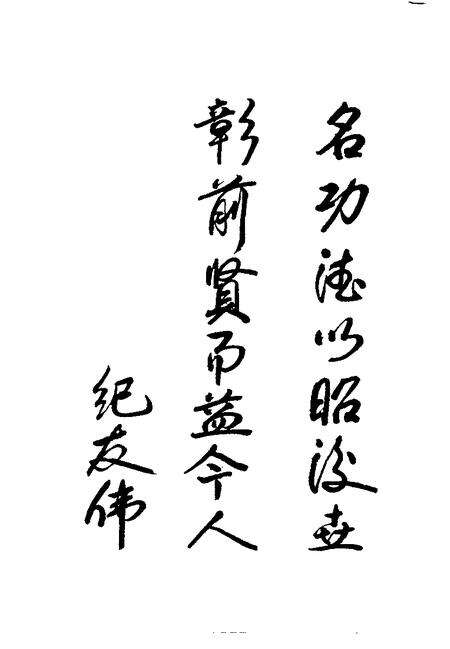 名功德以昭後世
彰前贤而益今人
纪友伟